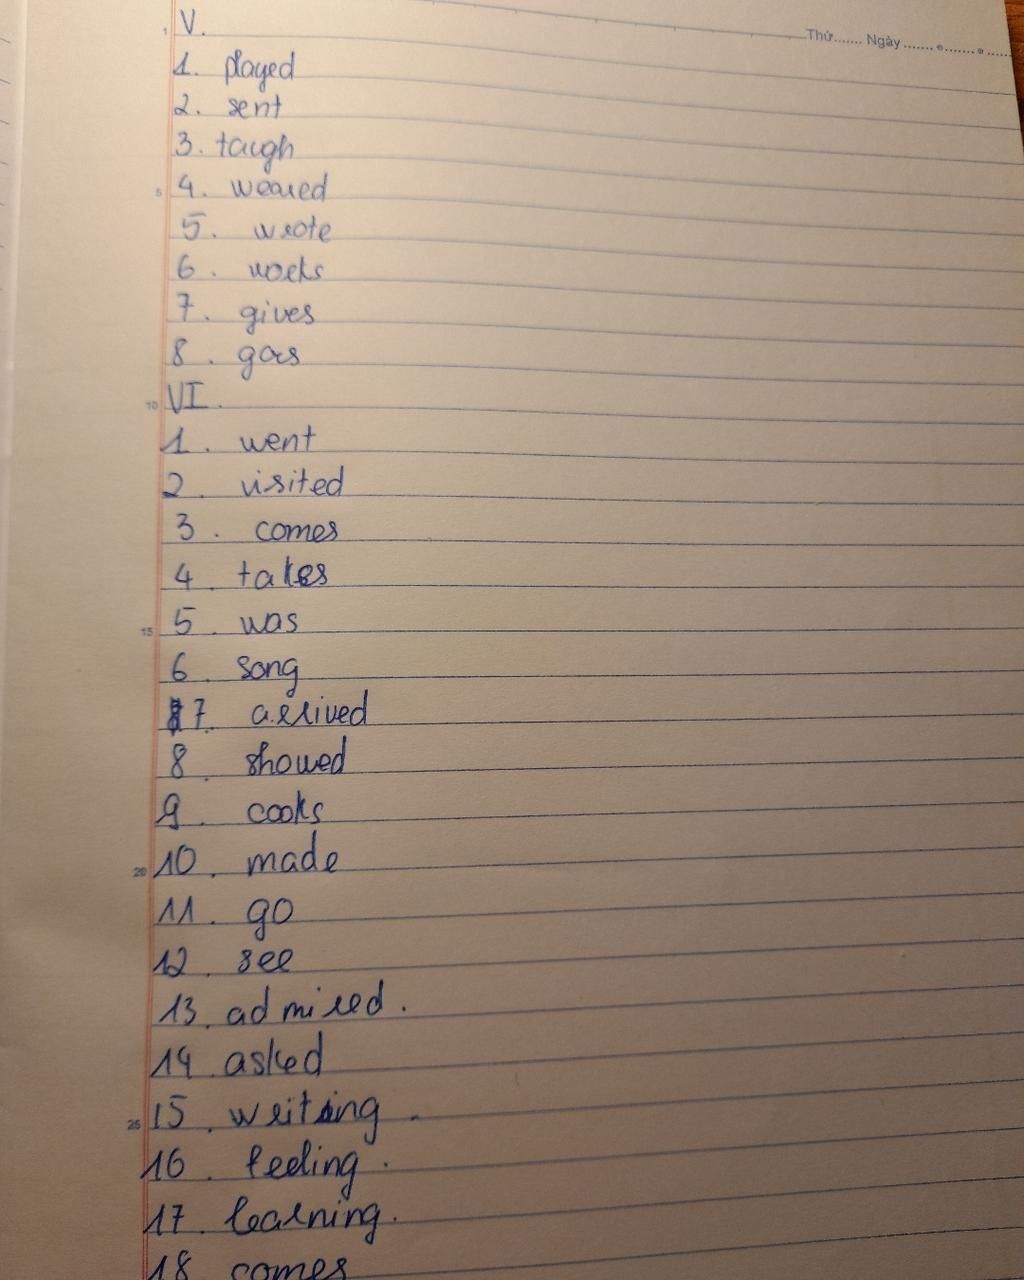 Thứ....... Ngày ....... ....... ......
1 V.
1. played
2. sent
3. taugh
5 4. weared
5. wrote
6. works
7. gives
8. goes
10 VI.
1. went
2. visited
3. comes
4. takes
15 5. was
6. song
7. arrived
8. showed
9. cooks
20 10. made
11. go
12. see
13. admired.
14 asked
25 15. writing.
16. feeling.
17. learning.
18 comes